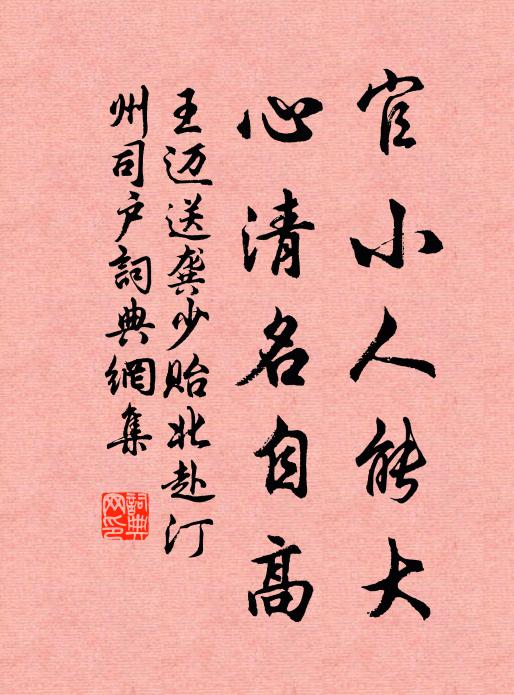 官小人能大
心清名自高
王迈送龚少贻北赴汀
州司户詞典網集
詞典网印